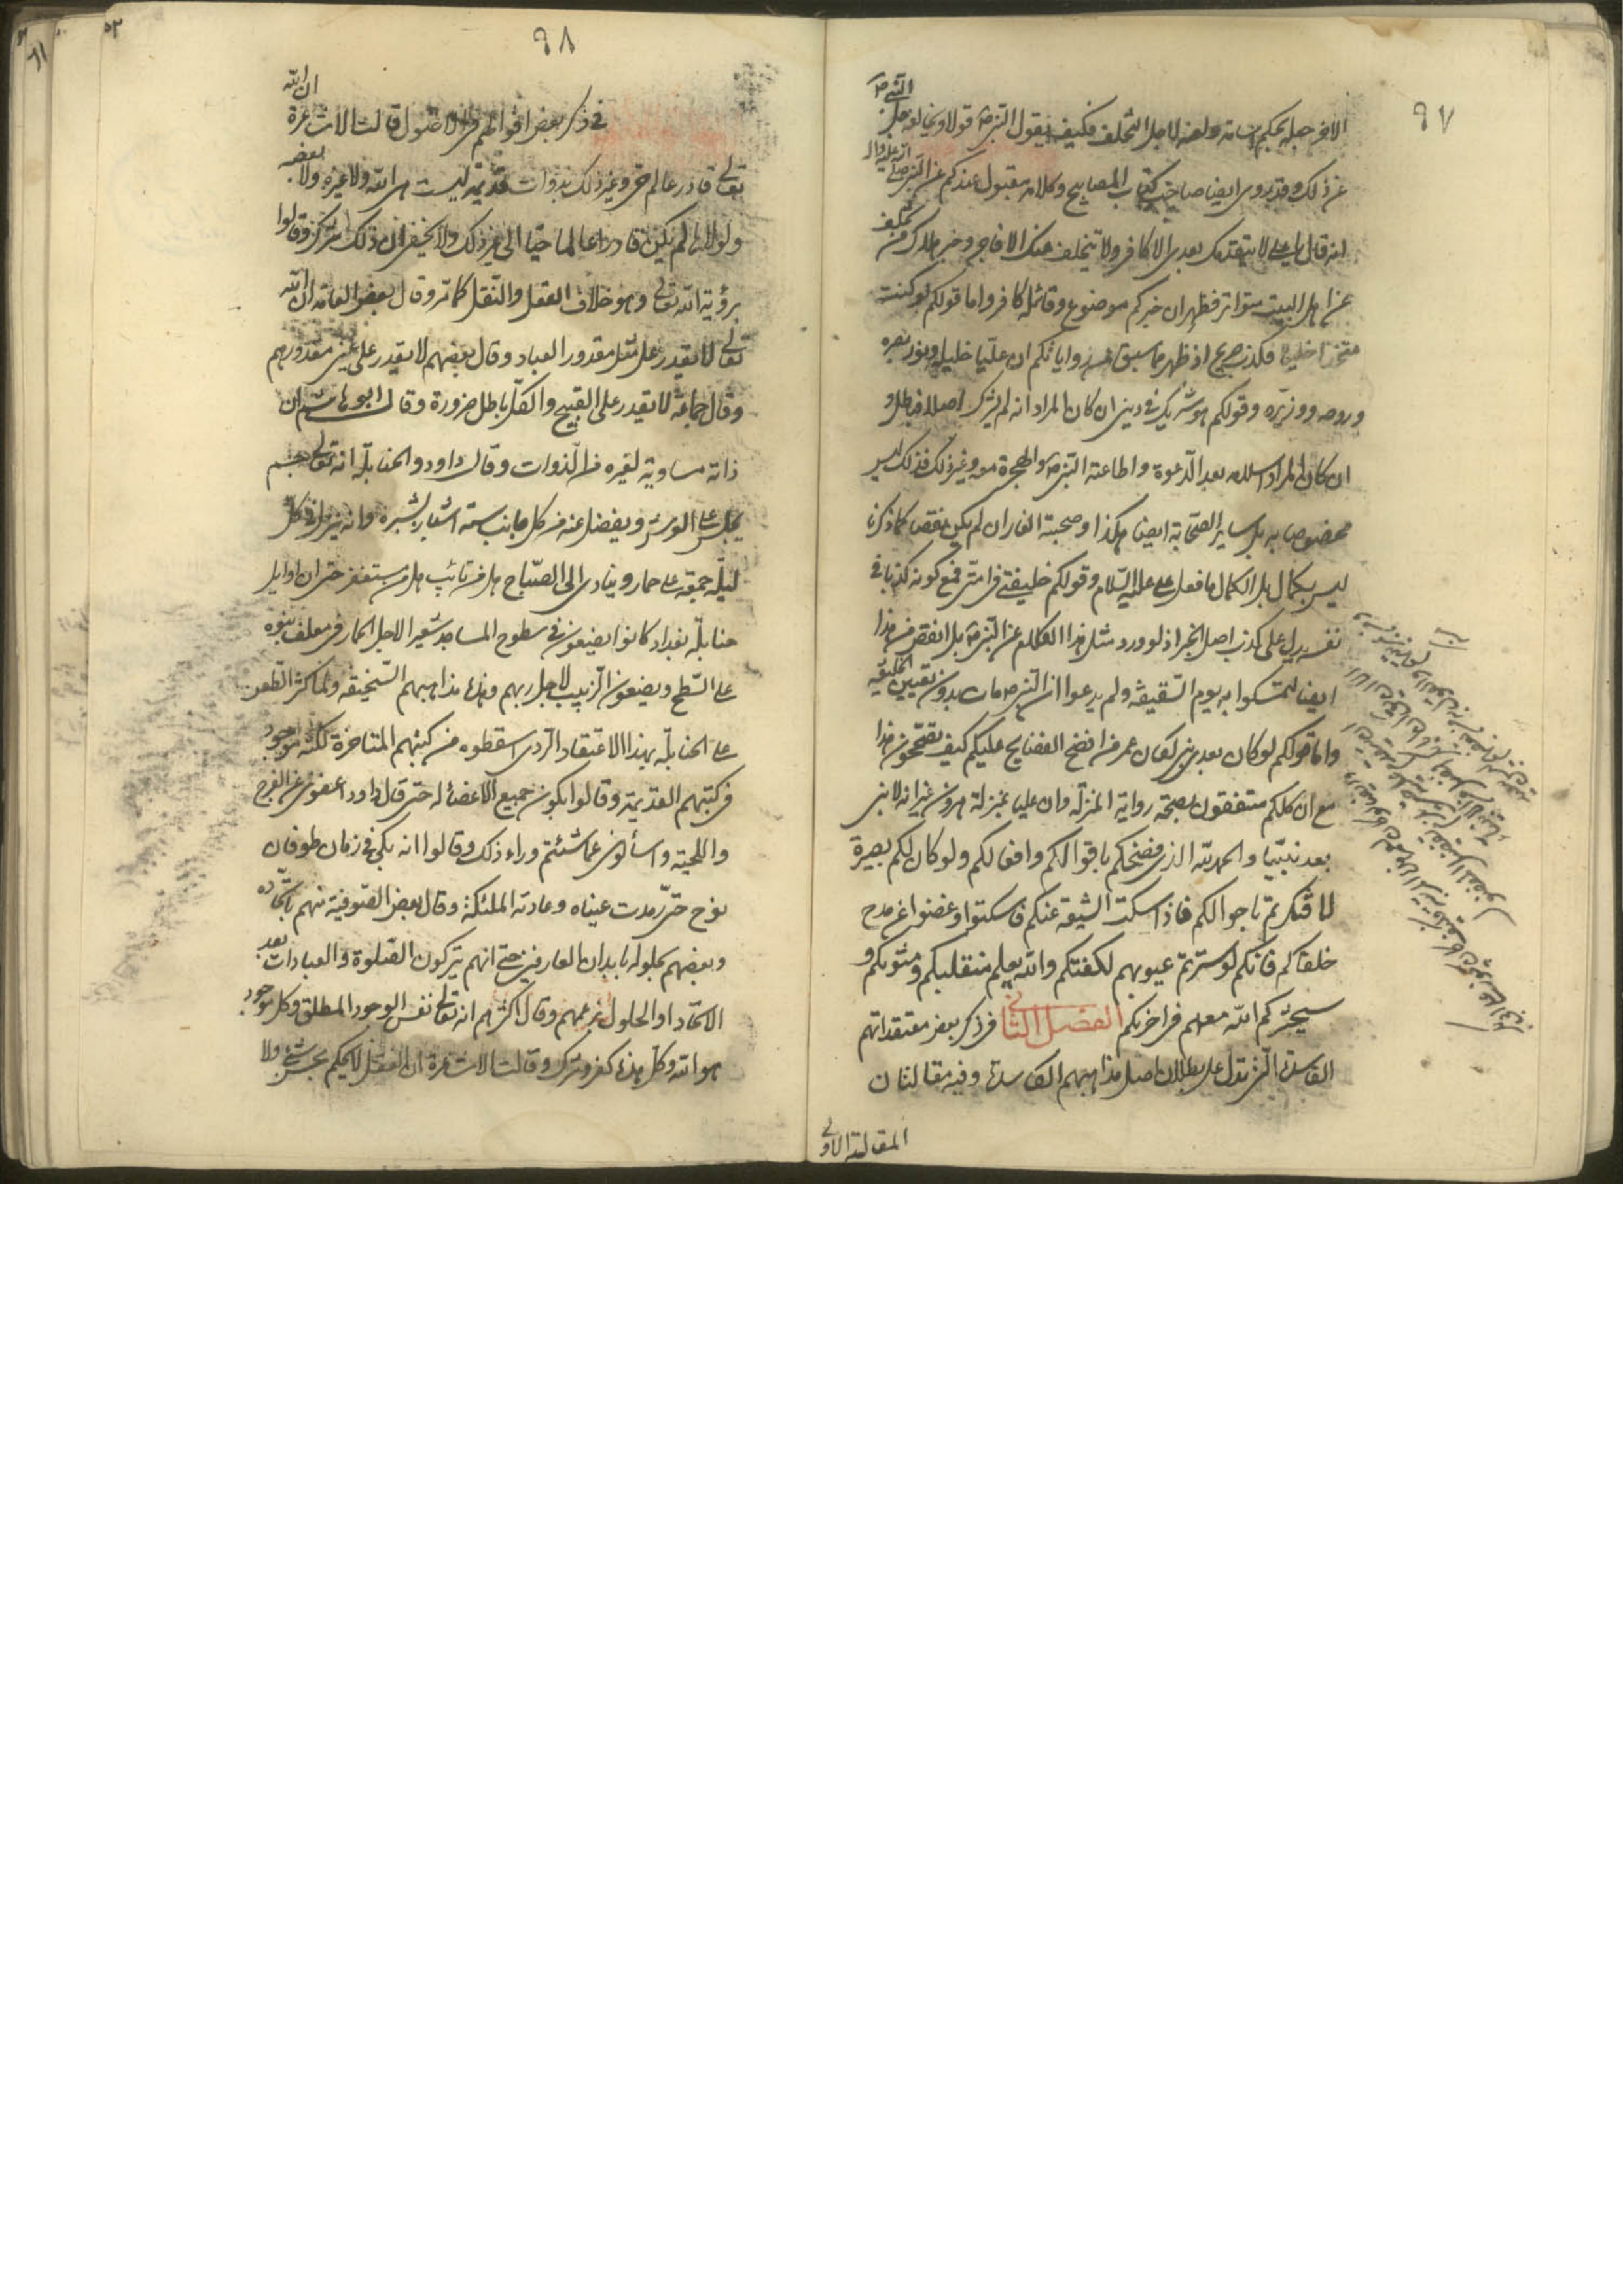 ٩٧
الاخر جعله يحكم اسامة ولعنه لاجل التخلف فكيف يقول النبي ص قولا ويخالفه
عن ذلك وقد يروى ايضا صاحب كتاب المصابيح وكلامه مقبول عندكم عن النبي صلى الله عليه واله
انه قال يا علي لا يتقدمك بعدي الا كافر ولا يتخلف عنك الا فاجر وخبر
عن اهل البيت متواتر فظهر ان خبركم موضوع وقائله كافر واما قولكم لو كنت
متخذا خليلا فكذب صريح اذ ظهر ما سبق من رواياتكم ان عليا خليله ونور بصره
وروحه ووزيره وقولكم هو شريك في ديني ان كان المراد انه لم يشرك اصلا فباطل و
ان كان المراد اسلامه بعد الدعوة واطاعة النبي ص والهجرة معه وغير ذلك فذلك ليس
مخصوصا به بل ساير الصحابة ايضا هكذا وصحبة الغار ان لم يكن نقصا كما ذكرنا
ليس بكمال بل الكمال ما فعل علي عليه السلام وقولكم خليفتي في امتي فمع كونه كذبا في
نفسه يدل على كذب اصل الخبر اذ لو ورد مثل هذا الكلام عن النبي ص بل انقص من هذا
ايضا لتمسكوا به يوم السقيفة ولم يدعوا ان النبي ص مات بدون تعيين الخليفة
واما قولكم لو كان بعدي نبي لكان عمر فمن افضح الفضايح عليكم كيف تصححون هذا
مع ان كلكم متفقون بصحة رواية المنزلة وان عليا بمنزلة هرون غير انه لا نبي
بعد نبينا والحمد لله الذي فضحكم باقوالكم وافعالكم ولو كان لكم بصيرة
لافتكرتم باحوالكم فاذا سكت الشيعة عنكم فاسكتوا وغضوا عن مدح
خلفائكم فانكم لو سترتم عيوبهم لكفتكم والله يعلم متقلبكم ومثويكم و
سيحشركم الله معهم في اخريكم الفصل الثاني في ذكر بعض معتقداتهم
الفاسدة التي تدل على بطلان اصل مذاهبهم الفاسدة وفيه مقالتان
المقالة الاولى
٩٨
في ذكر بعض اقوالهم في الاصول قالت الاشاعرة ان الله
تعالى قادر عالم حي وغير ذلك بذوات قديمة ليست هي الله ولا غيره ولا بعضه
ولولاها لم يكن قادرا عالما حيا الى غير ذلك ولا يخفى ان ذلك شرك وقالوا
برؤية الله تعالى وهو خلاف العقل والنقل كما مر وقال بعض العامة ان الله
تعالى لا يقدر على مثل مقدور العباد وقال بعضهم لا يقدر على عين مقدورهم
وقال جماعة لا يقدر على القبيح والكل باطل ضرورة وقال ابو هاشم ان
ذاته مساوية لغيره من الذوات وقال داود والحنابلة انه تعالى جسم
يجلس على العرش ويفضل عنه من كل جانب ستة اشبار بشبره وانه ينزل في كل
ليلة جمعة على حمار وينادي الى الصباح هل من تائب هل من مستغفر حتى ان اوايل
حنابلة بغداد كانوا يضعون في سطوح المساجد شعيرا لاجل الحمار في معلف بنوه
على السطح ويضعون الزبيب لاجل ربهم وهذه مذاهبهم السخيفة ولما كثر الطعن
على الحنابلة بهذا الاعتقاد الردى اسقطوه من كتبهم المتاخرة لكنه موجود
في كتبهم القديمة وقالوا بكون جميع الاعضاء له حتى قال داود اعفوني عن الفرج
واللحية واسألوني عما شئتم وراء ذلك وقالوا انه بكى في زمان طوفان
نوح حتى رمدت عيناه وعادته الملئكة وقال بعض الصوفية منهم باتحاده
وبعضهم بحلوله بابدان العارفين حتى انهم يتركون الصلوة والعبادات بعد
الاتحاد او الحلول بزعمهم وقال اكثرهم انه تعالى نفس الوجود المطلق وكل موجود
هو الله وكل هذه كفر وشرك وقالت الاشاعرة ان العقل لا يحكم بحسن شئ ولا